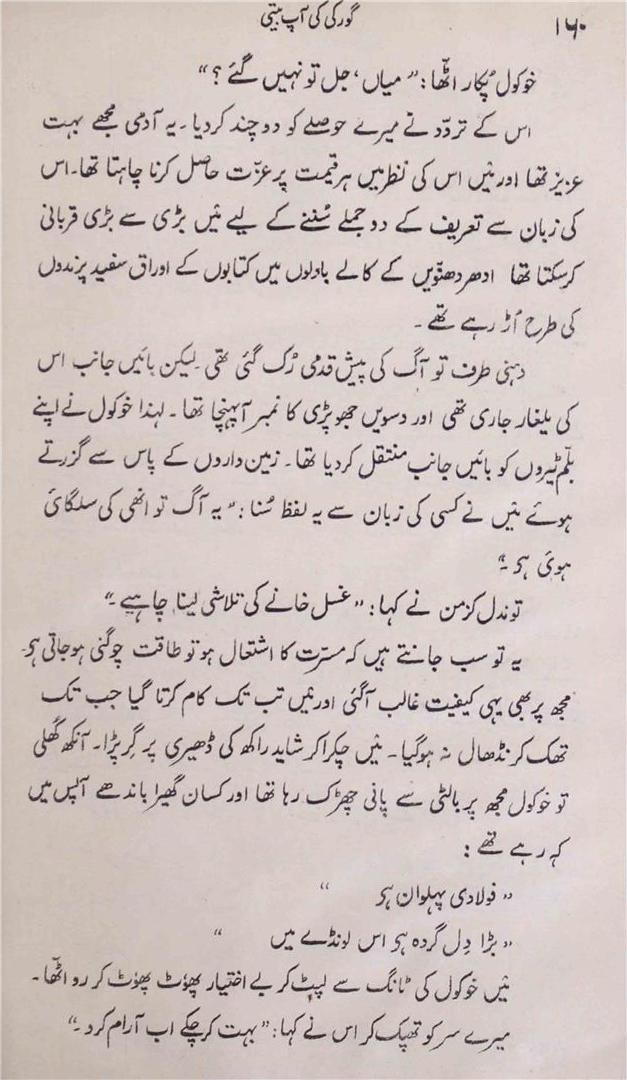 ۱۶۰
گورکی کی آپ بیتی
خوکول پُکار اٹھا: ”میاں، جل تو نہیں گئے ؟“
اس کے تردّد نے میرے حوصلے کو دو چند کردیا ۔ یہ آدمی مجھے بہت
عزیز تھا اور میں اس کی نظر میں ہر قیمت پر عزّت حاصل کرنا چاہتا تھا۔ اس
کی زبان سے تعریف کے دو جملے سُننے کے لیے میں بڑی سے بڑی قربانی
کرسکتا تھا ادھر دھنوّیں کے کالے بادلوں میں کتابوں کے اوراق سفید پرندوں
کی طرح اُڑ رہے تھے ۔
دہنی طرف تو آگ کی پیش قدمی رُک گئی تھی لیکن بائیں جانب اس
کی یلغار جاری تھی اور دسویں جھوپڑی کا نمبر آپہنچا تھا ۔ لہذا خوکول نے اپنے
بلّم ٹیروں کو بائیں جانب منتقل کردیا تھا۔ زمین داروں کے پاس سے گزرتے
ہوئے میں نے کسی کی زبان سے یہ لفظ سُنا: ”یہ آگ تو انھی کی سلگائی
ہوئ ہی ۔“
تو ندل کزمن نے کہا: ”غسل خانے کی تلاشی لینا چاہیے ۔“
یہ تو سب جانتے ہیں کہ مسرّت کا اشتعال ہو تو طاقت چوگنی ہوجاتی ہی۔
مجھ پر بھی یہی کیفیت غالب آگئی اور میں تب تک کام کرتا گیا جب تک
تھک کر نڈھال نہ ہوگیا۔ میں چکرا کر شاید راکھ کی ڈھیری پر گر پڑا۔ آنکھ کُھلی
تو خوکول مجھ پر بالٹی سے پانی چھڑک رہا تھا اور کسان گھیرا باندھے آپس میں
کہ رہے تھے :
”فولادی پہلوان ہی“
”بڑا دِل گردہ ہی اس لونڈے میں“
میں خوکول کی ٹانگ سے لپٹ کر بے اختیار پھوٗٹ پھوٗٹ کر رو اٹھا۔
میرے سر کو تھپک کر اس نے کہا: ”بہت کرچکے اب آرام کرو ۔“